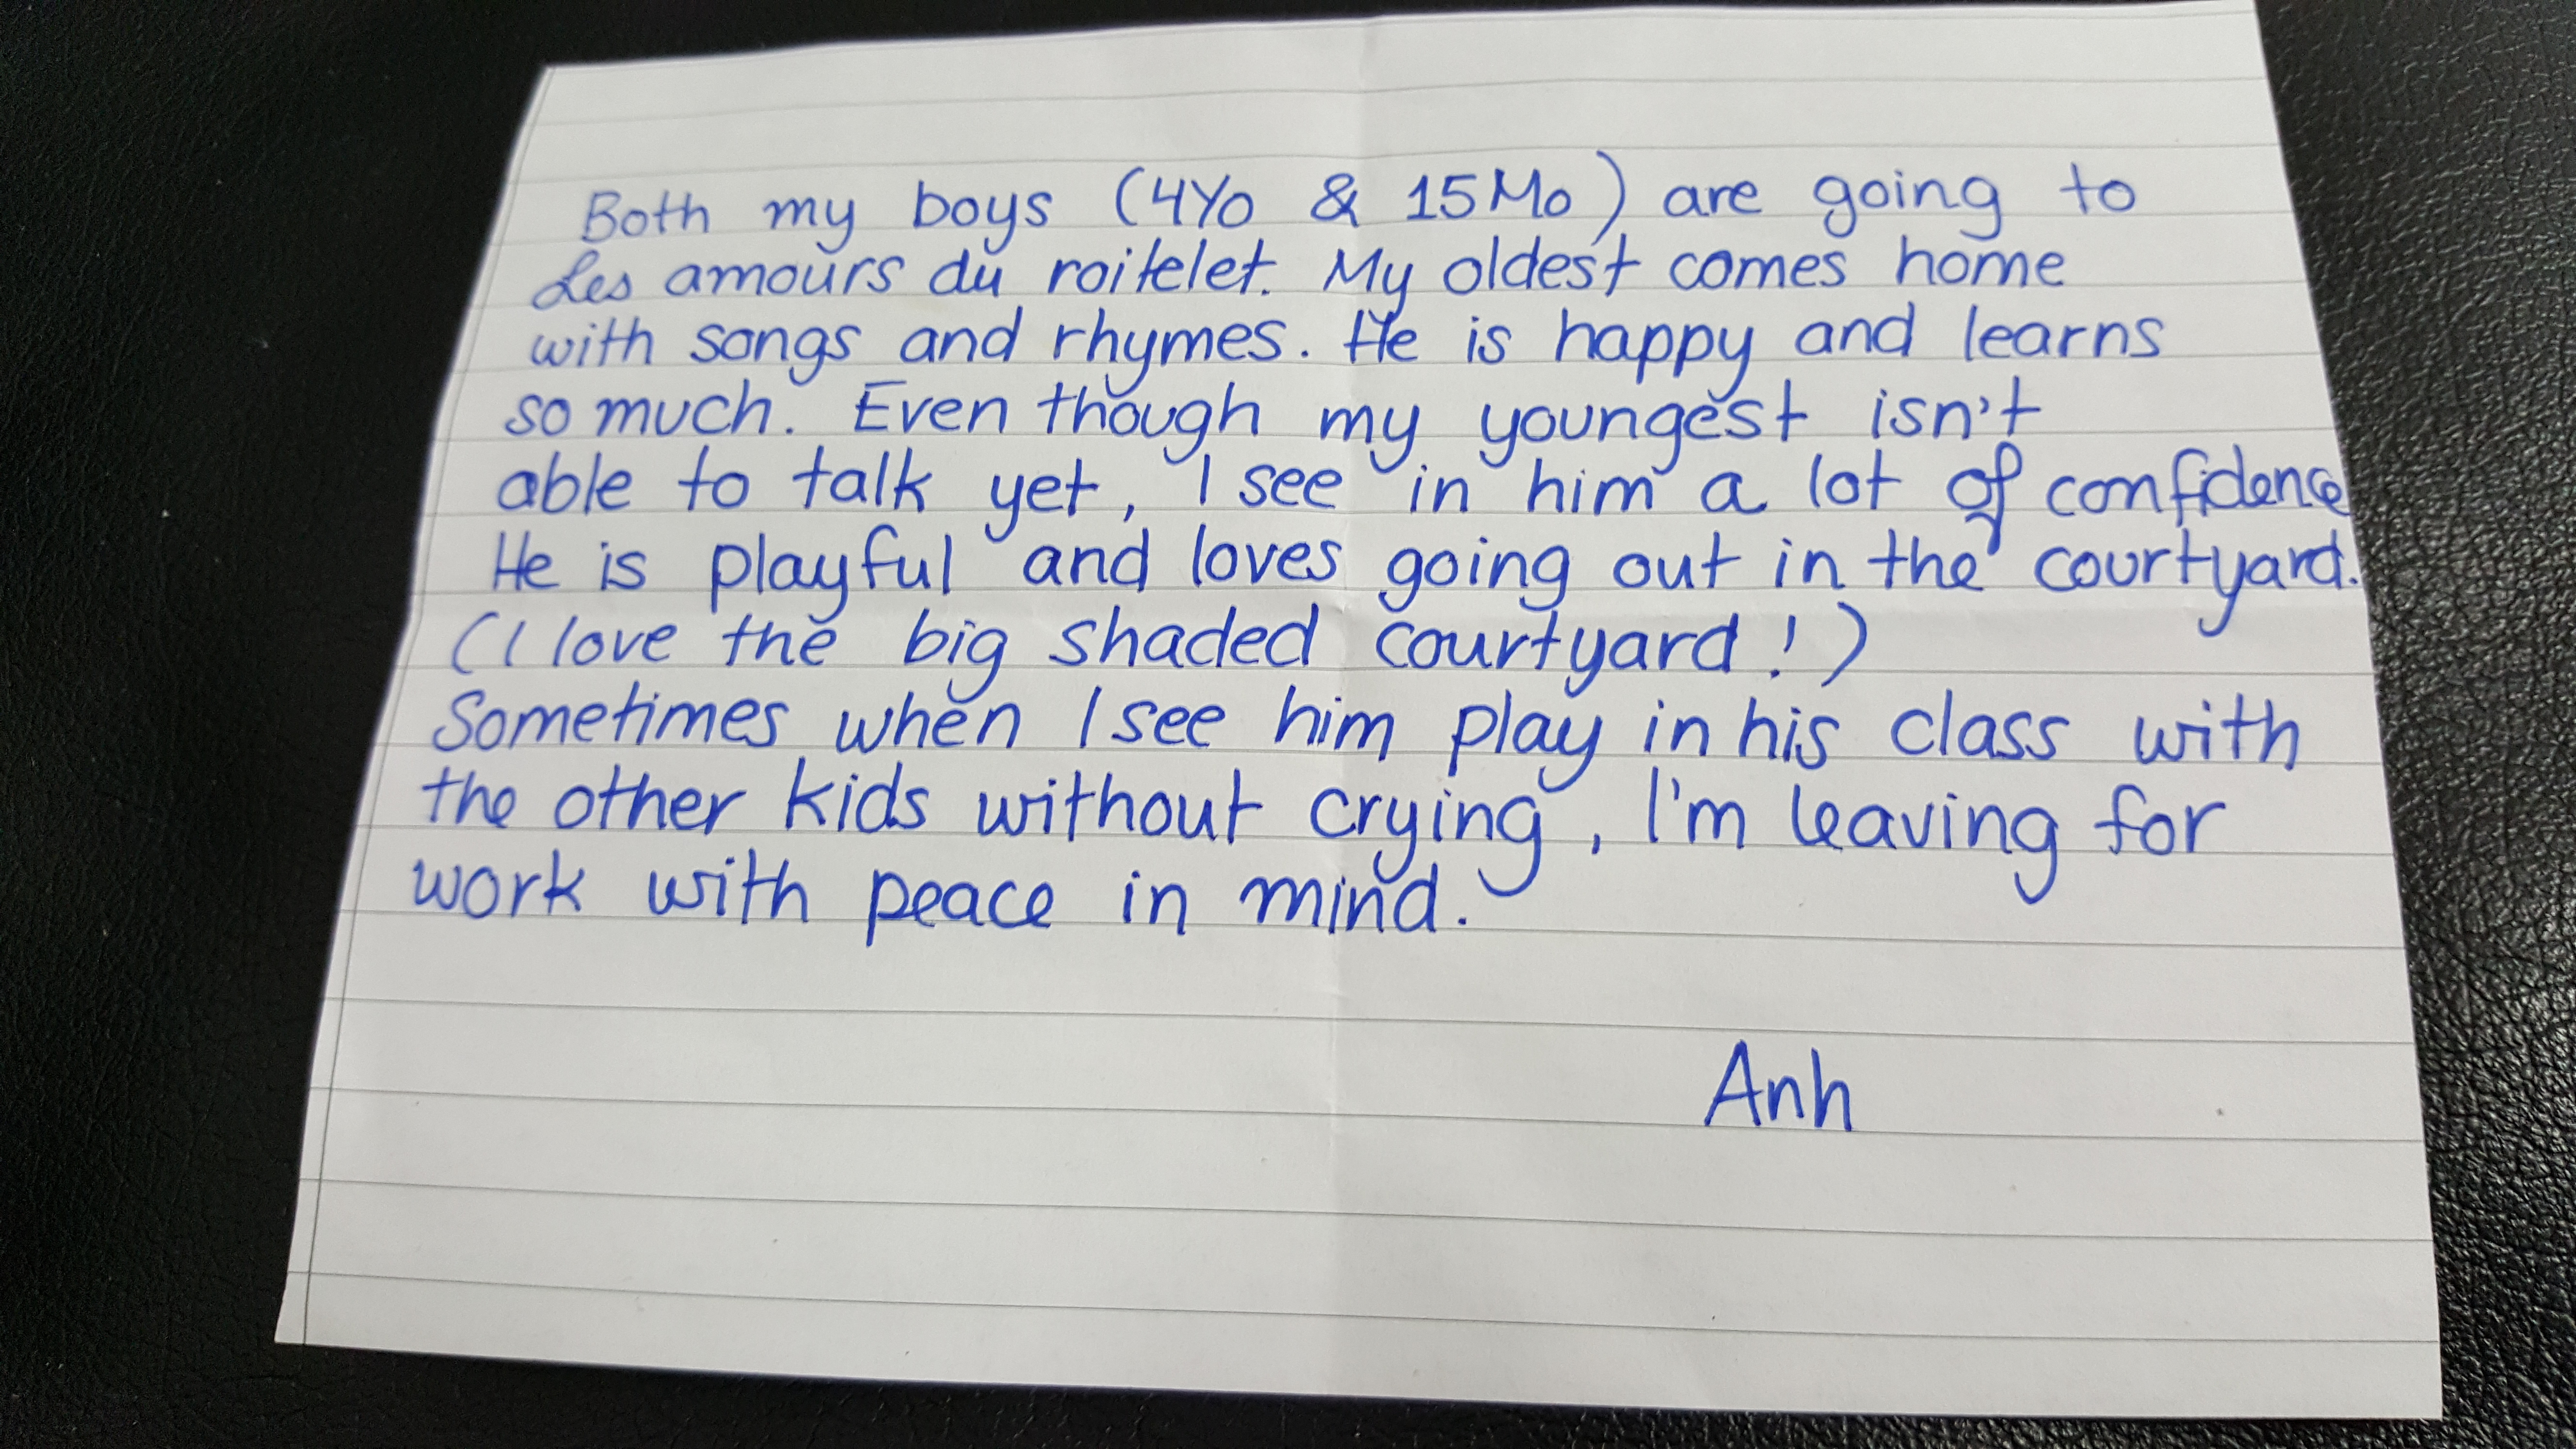 Both my boys (4Yo & 15Mo) are going to
Les amours du roitelet. My oldest comes home
with songs and rhymes. He is happy and learns
so much. Even though my youngest isn't
able to talk yet, I see in him a lot of confidence
He is playful and loves going out in the courtyard.
(I love the big shaded courtyard!)
Sometimes when I see him play in his class with
the other kids without crying, I'm leaving for
work with peace in mind.
Anh